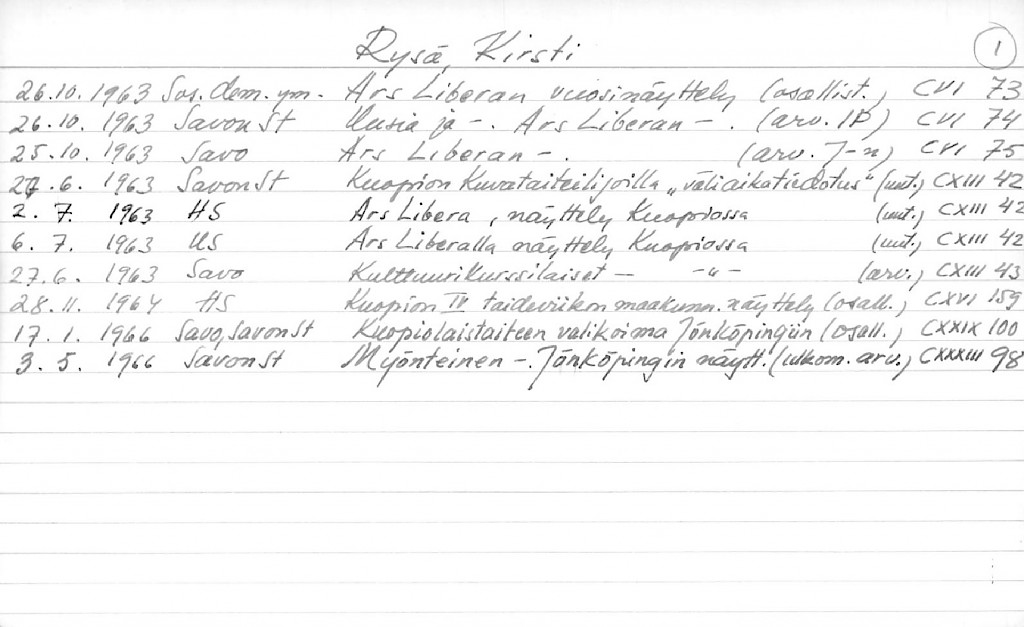 Rysä, Kirsti 1
26.10.1963 Sos.dem.ym. Ars Liberan vuosinäyttely (osallist.) CVI 73
26.10.1963 SavonSt Uusia ja -. Ars Liberan -. (arv. IP) CVI 74
25.10.1963 Savo Ars Liberan -. (arv. J-n) CVI 75
27.6.1963 SavonSt Kuopion Kuvataiteilijoilla „väliaikatiedotus" (uut.) CXIII 42
2.7.1963 HS Ars Libera, näyttely Kuopiossa (uut.) CXIII 42
6.7.1963 US Ars Liberalla näyttely Kuopiossa (uut.) CXIII 42
27.6.1963 Savo Kulttuurikurssilaiset - -"- (arv.) CXIII 43
28.11.1964 HS Kuopion IV taideviikon maakunn.näyttely (osall.) CXVI 159
17.1.1966 Savo,SavonSt Kuopiolaistaiteen valikoima Jönköpingiin (osall.) CXXIX 100
3.5.1966 SavonSt Myönteinen -. Jönköpingin näytt. (ulkom.arv.) CXXXIII 98